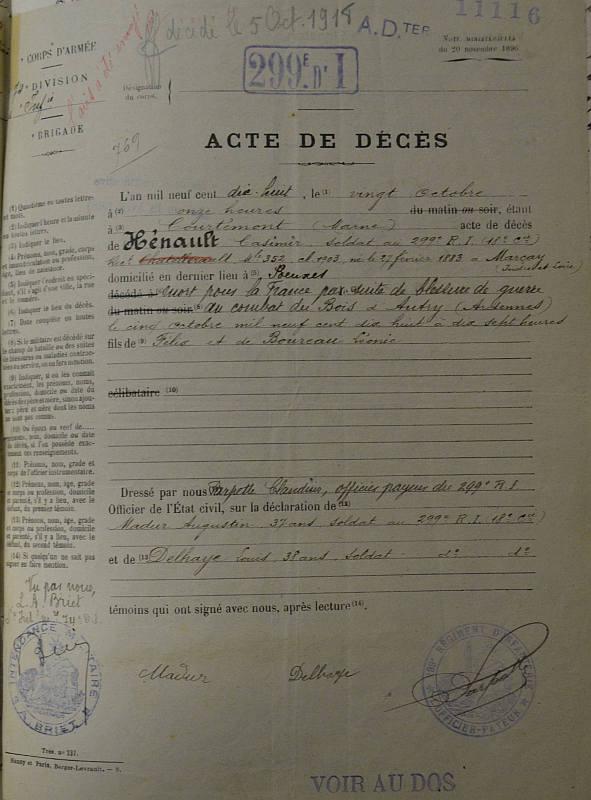 décédé le 5 Oct. 1918
A.D TER
11116
CORPS D'ARMÉE
DIVISION
BRIGADE
Désignation
du corps.
299.E D'I
NOTE MINISTÉRIELLE
du 20 novembre 1896
769
ACTE DE DÉCÈS
L'an mil neuf cent dix-huit, le (1) vingt Octobre
à (2) onze heures du matin ou soir, étant
à (3) Courtémont (Marne) acte de décès
de Hénault Casimir, soldat au 299e R.I. (18e Cie)
Mle 352, cl 1903, né le 27 février 1883 à Marçay
Indre et Loire
domicilié en dernier lieu à (5) Beuxes
décédé à mort pour la France par suite de blessure de guerre
du matin ou soir (6) au combat du Bois d'Autry (Ardennes)
le cinq Octobre mil neuf cent dix huit à dix sept heures
fils de (9) Félix et de Boureau Léonie
célibataire (10)
Dressé par nous Parpotte Claudius, officier payeur du 299e R.I
Officier de l'État civil, sur la déclaration de (12)
Madur Augustin 37 ans soldat au 299e R.I. (18e Cie)
et de (13) Delhaye Louis, 38 ans, soldat do do
témoins qui ont signé avec nous, après lecture (14).
(1) Quantième en toutes lettres
et mois.
(2) Indiquer l'heure et la minute
en toutes lettres.
(3) Indiquer le lieu.
(4) Prénoms, nom, grade, corps
et immatriculation ou profession,
âge, lieu de naissance.
(5) Indiquer l'endroit en spécifiant,
s'il s'agit d'une ville, la rue
et le numéro.
(6) Indiquer le lieu du décès.
(7) Date complète en toutes
lettres.
(8) Si le militaire est décédé sur
le champ de bataille ou des suites
de blessures ou maladies contractées
au service, on en fera mention.
(9) Indiquer, si on les connaît
exactement, les prénoms, noms,
profession, domicile ou date du
décès des père et mère, sinon ajouter :
père et mère dont les noms
ne sont pas connus.
(10) Ou époux ou veuf de.....
prénoms, nom, domicile ou date
de décès, si l'on possède exactement
ces renseignements.
(11) Prénoms, nom, grade et
corps de l'officier instrumentaire.
(12) Prénoms, nom, âge, grade
et corps ou profession, domicile
et parenté, s'il y a lieu, avec le
défunt, du premier témoin.
(13) Prénoms, nom, âge, grade
et corps ou profession, domicile
et parenté, s'il y a lieu, avec le
défunt, du second témoin.
(14) Si quelqu'un ne sait pas
signer en faire mention.
Vu par nous,
L.A. Briet
INTENDANCE MILITAIRE
A. BRIET
Madur
Delhaye
Parpotte
RÉGIMENT D'INFANTERIE
OFFICIER-PAYEUR
Tréz. n° 137.
Nancy et Paris, Berger-Levrault. — 8.
VOIR AU DOS